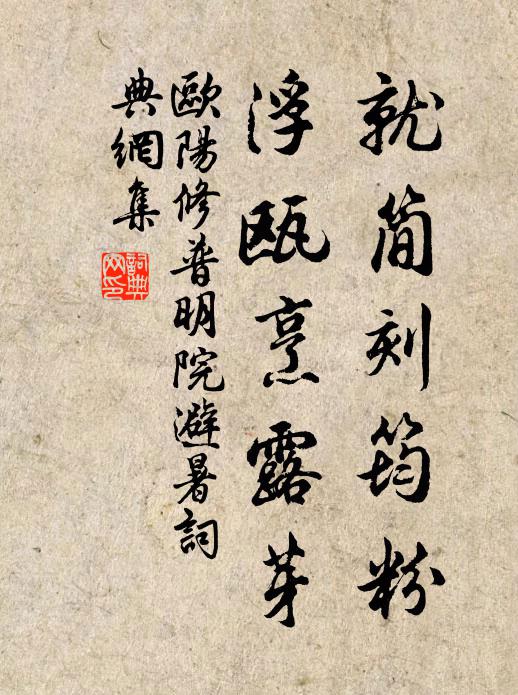 就简刻筠粉
浮瓯烹露芽
歐陽修普明院避暑詞
典網集
詞典
网印